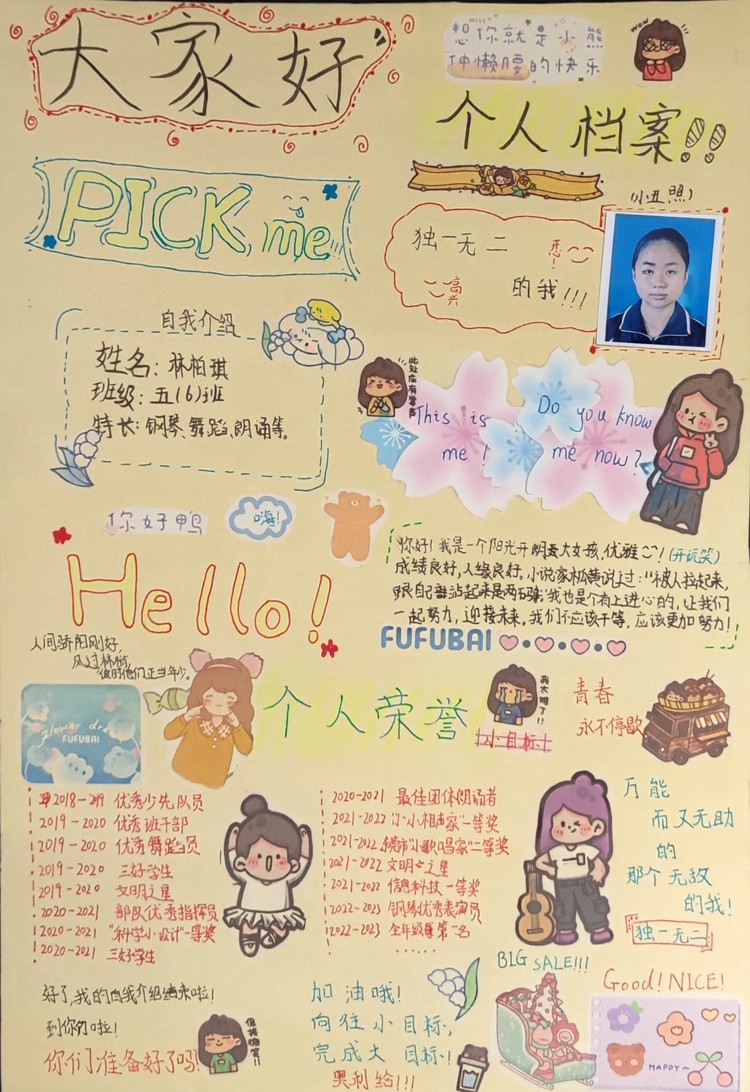 大家好
miss
想你就是小熊
伸懒腰的快乐
wow
个人档案!!
PICK me
(小丑照)
独一无二
的我!!!
高兴
自我介绍
姓名:林柏琪
班级:五(6)班
特长:钢琴、舞蹈、朗诵等。
此处应有掌声
This is
me!
Do you know
me now?
你好鸭
嗨!
Hello!
你好!我是一个阳光开朗大女孩,优雅!(开玩笑)
成绩良好,人缘良好,小说家松黄说过:"被人拉起来,
跟自己站起来是两码事"我也是个有上进心的,让我们
一起努力,迎接未来,我们不应该干等,应该更加努力!
FUFUBAI
人间骄阳刚好,
风过林梢,
彼时他们正当年少。
Flower dra
FUFUBAI
个人荣誉
我太难了!!
小目标
青春
永不停歇
2018-2019 优秀少先队员
2019-2020 优秀班干部
2019-2020 优秀舞蹈员
2019-2020 三好学生
2019-2020 文明之星
2020-2021 部队优秀指挥员
2020-2021 "科学小设计"一等奖
2020-2021 三好学生
2020-2021 最佳团体朗诵者
2021-2022 "小小相声家"一等奖
2021-2022 "小歌唱家"一等奖
2021-2022 文明之星
2021-2022 信息科技一等奖
2022-2023 钢琴优秀表演员
2022-2023 全年级第一名
......
万能
而又无助
的
那个无敌
的我!
独一无二
好了,我的自我介绍结束啦!
到你们啦!
你们准备好了吗!
保持微笑!!
加油哦!
向往小目标,
完成大目标!
奥利给!!!
BIG SALE!!!
Good! NICE!
HAPPY~